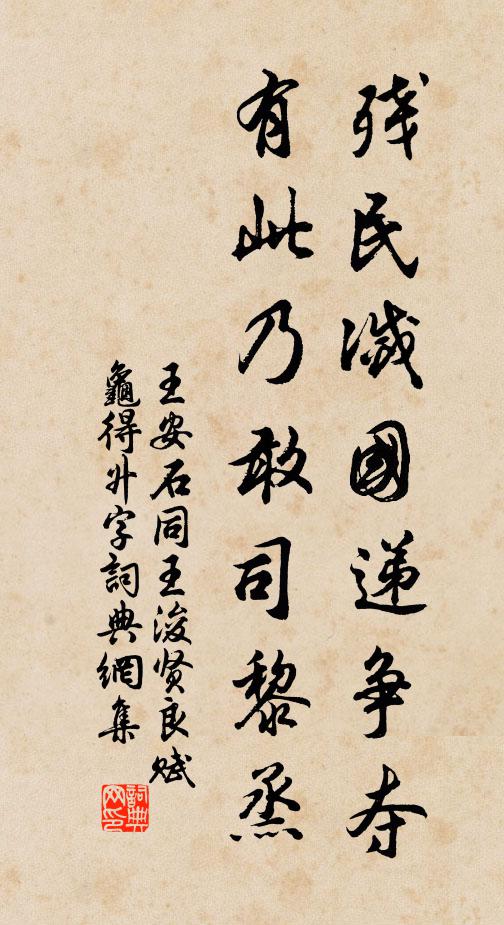 残民滅國递争夺
有此乃敢司黎烝
王安石同王浚贤良赋
龜得升字詞典網集
詞典网印